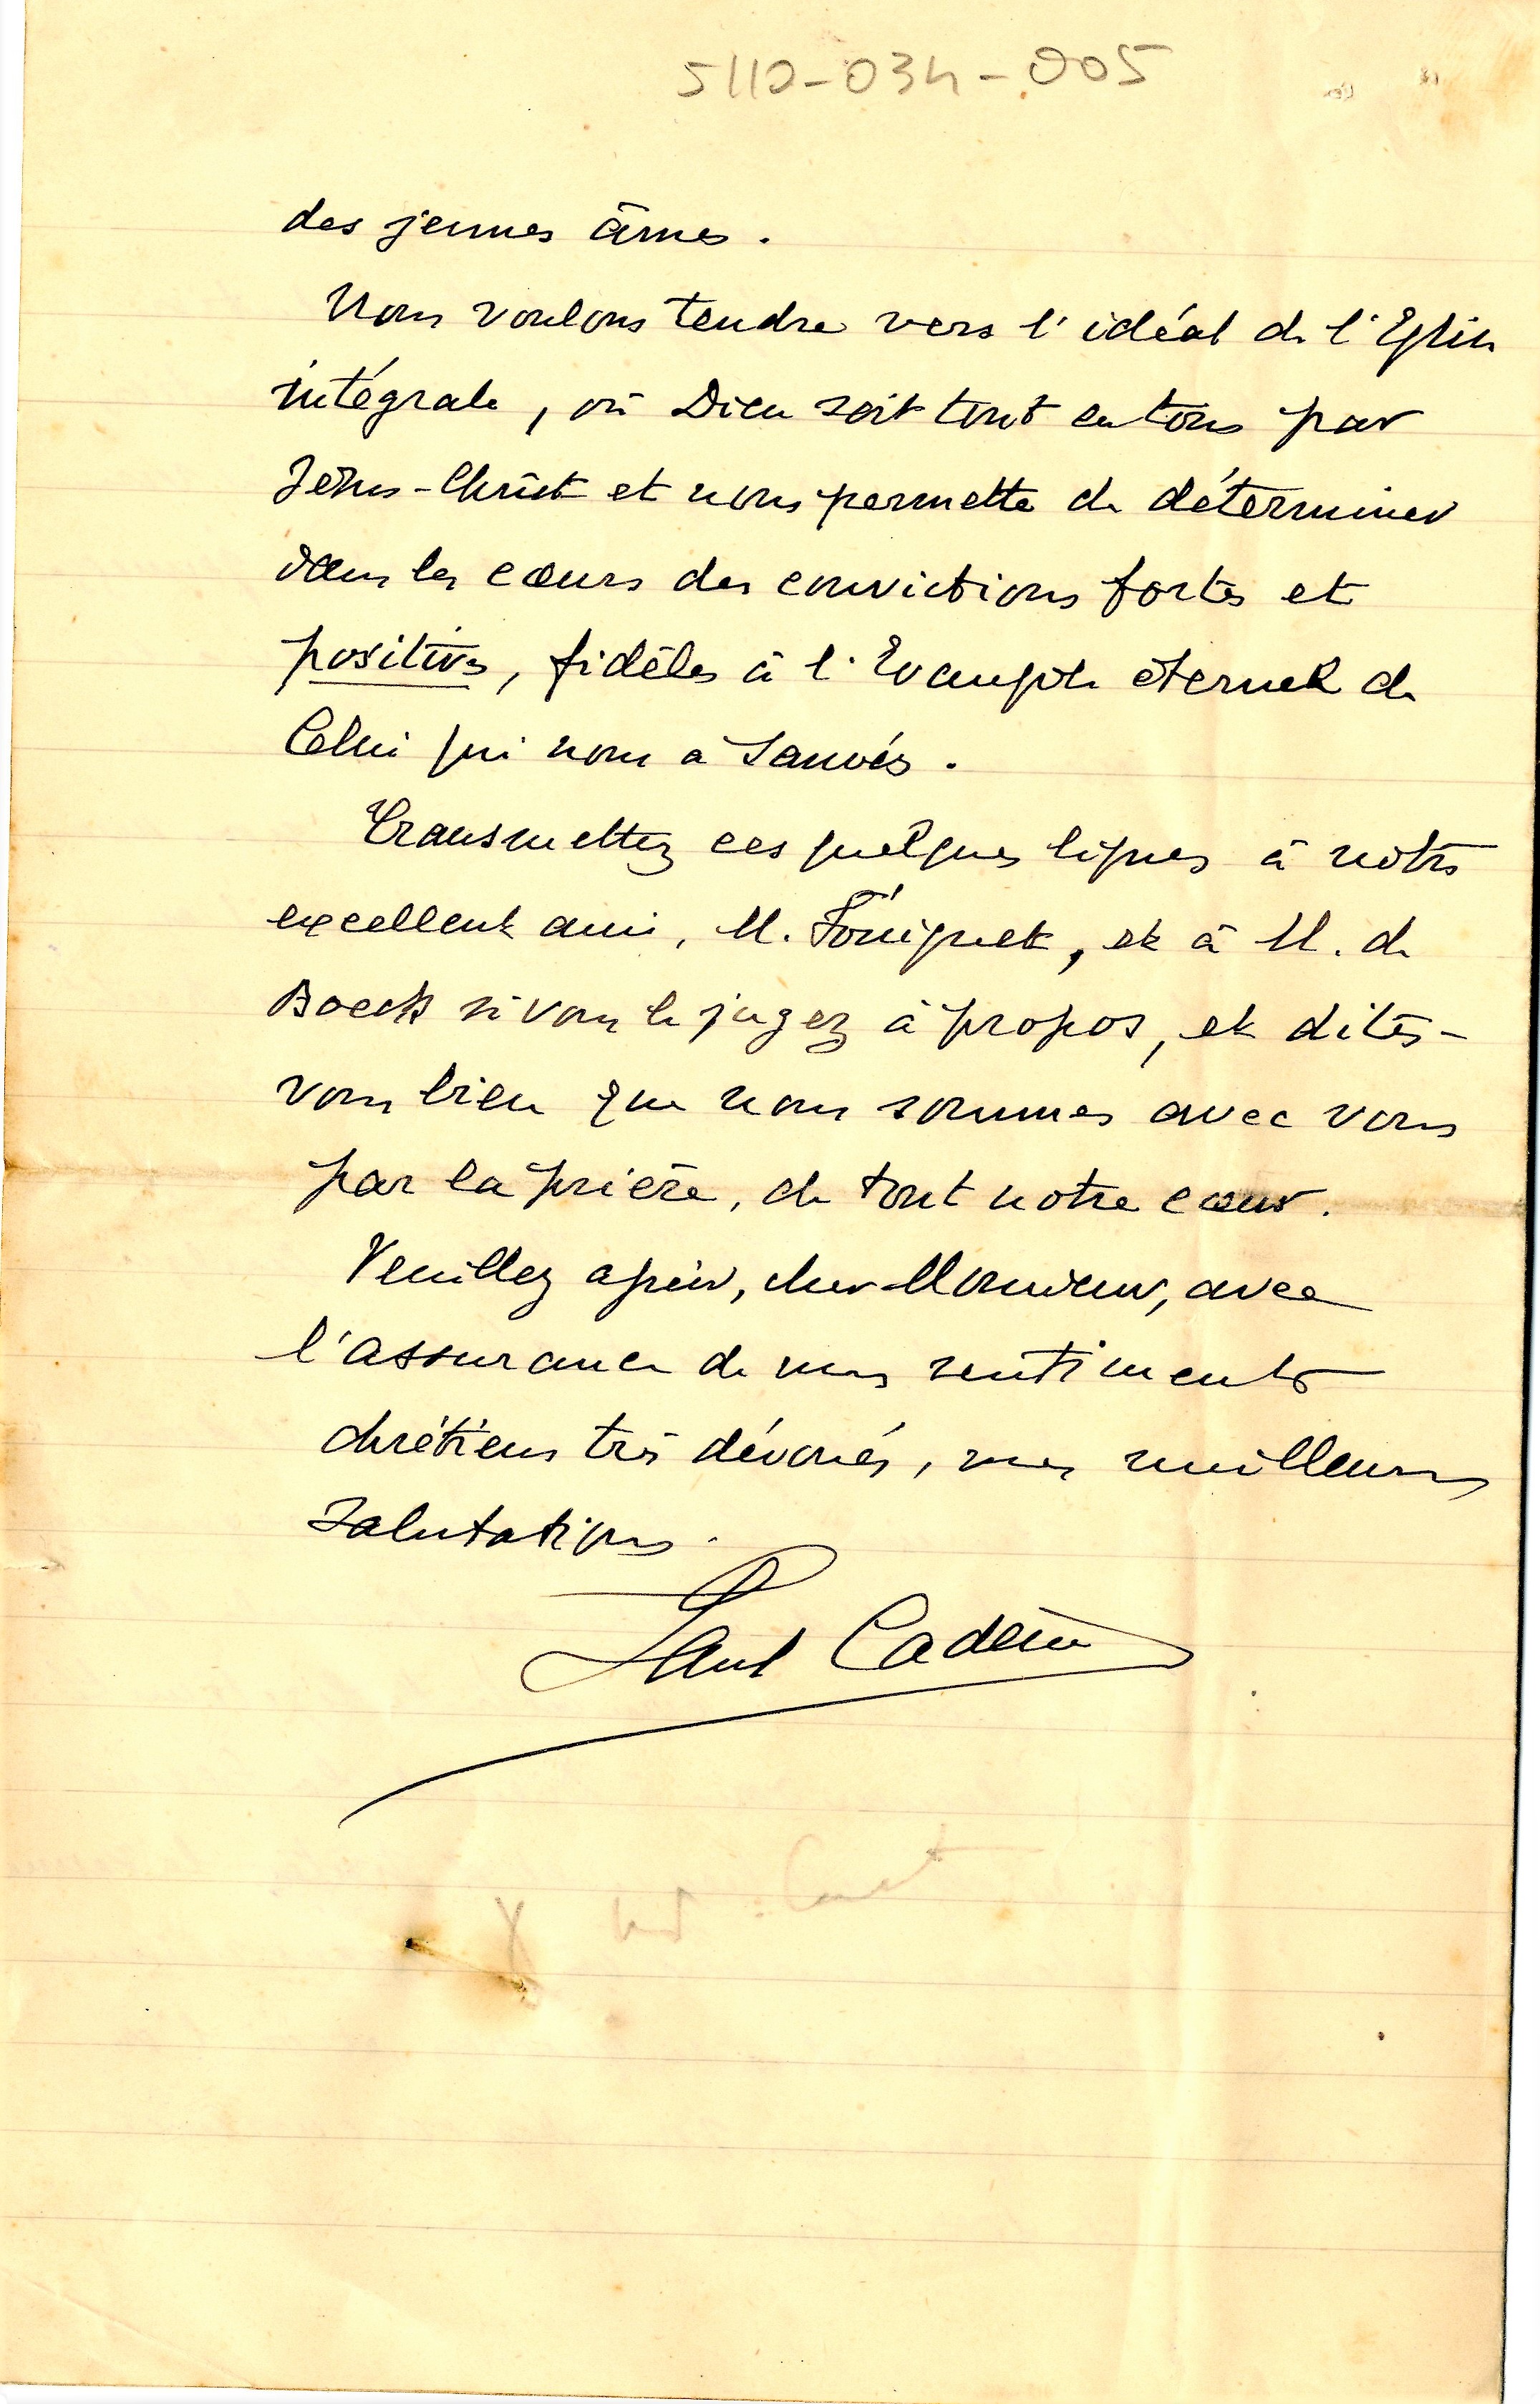 5112-034-005
des jeunes âmes.
Nous voulons tendre vers l'idéal de l'Eglise
intégrale, où Dieu soit tout en tous par
Jésus-Christ et nous permette de déterminer
dans les cœurs des convictions fortes et
positives, fidèles à l'Evangile éternel de
Celui qui nous a sauvés.
Transmettez ces quelques lignes à notre
excellent ami, M. et à M. de
Boeck si vous le jugez à propos, et dites-
vous bien que nous sommes avec vous
par la prière, de tout notre cœur.
Veuillez agréer, cher Monsieur, avec
l'assurance de mes sentiments
chrétiens très dévoués, mes meilleures
salutations.
Paul